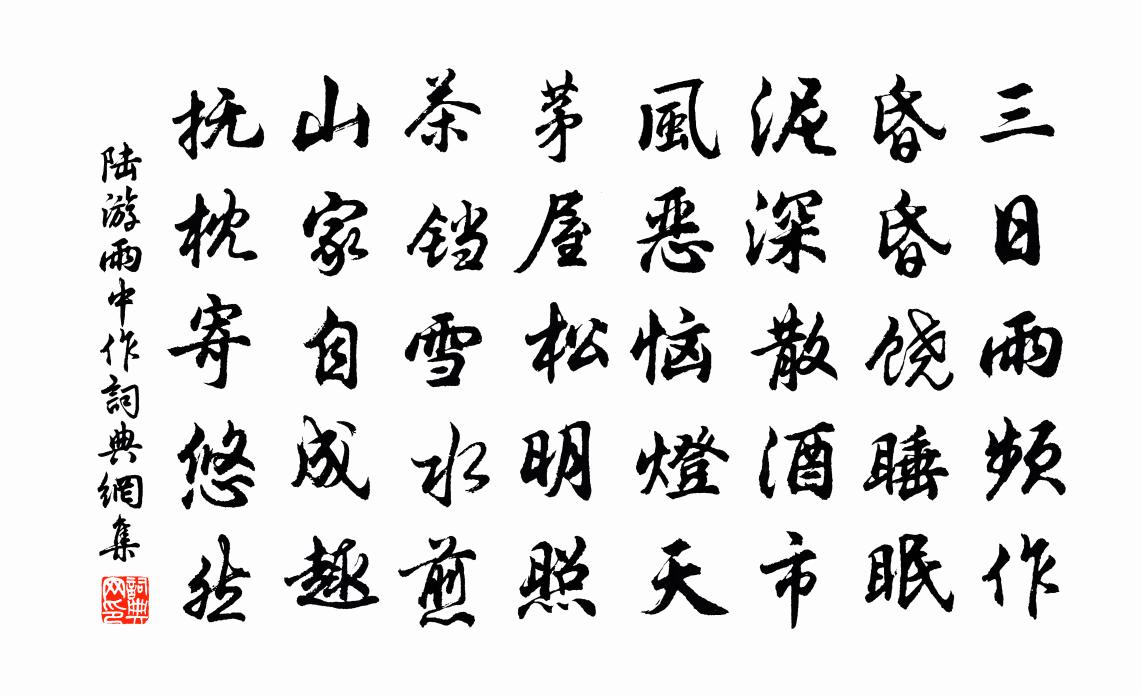 三日雨频作
昏昏饶睡眠
泥深散酒市
風恶恼燈天
茅屋松明照
茶铛雪水煎
山家自成趣
抚枕寄悠然
陆游雨中作詞典網集
詞典网印